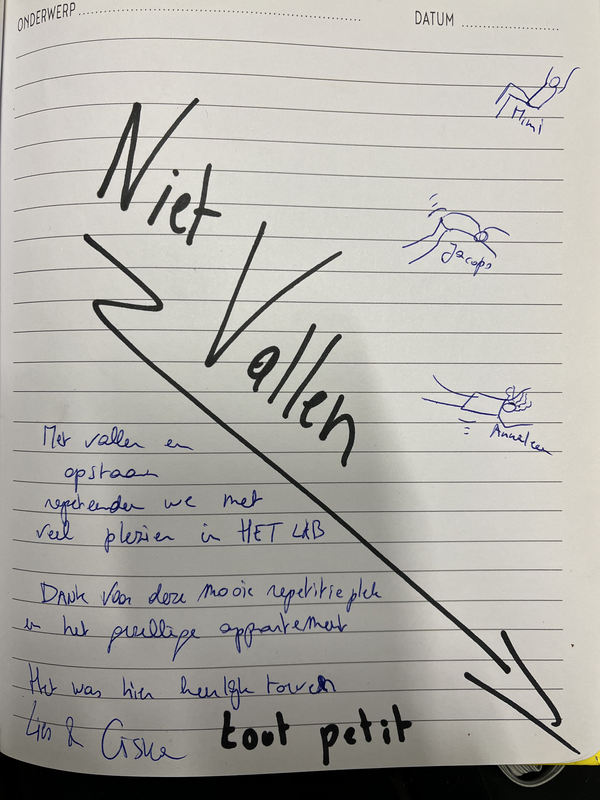 ONDERWERP
DATUM
Mimi
Niet
Jacops
Vallen
Anneleen
Met vallen en
opstaan
repeteerden we met
veel plezier in HET LAB
DANK voor deze mooie repetitieplek
in het gezellige appartement
Het was hier heerlijk toeven
Lies & Ciska tout petit